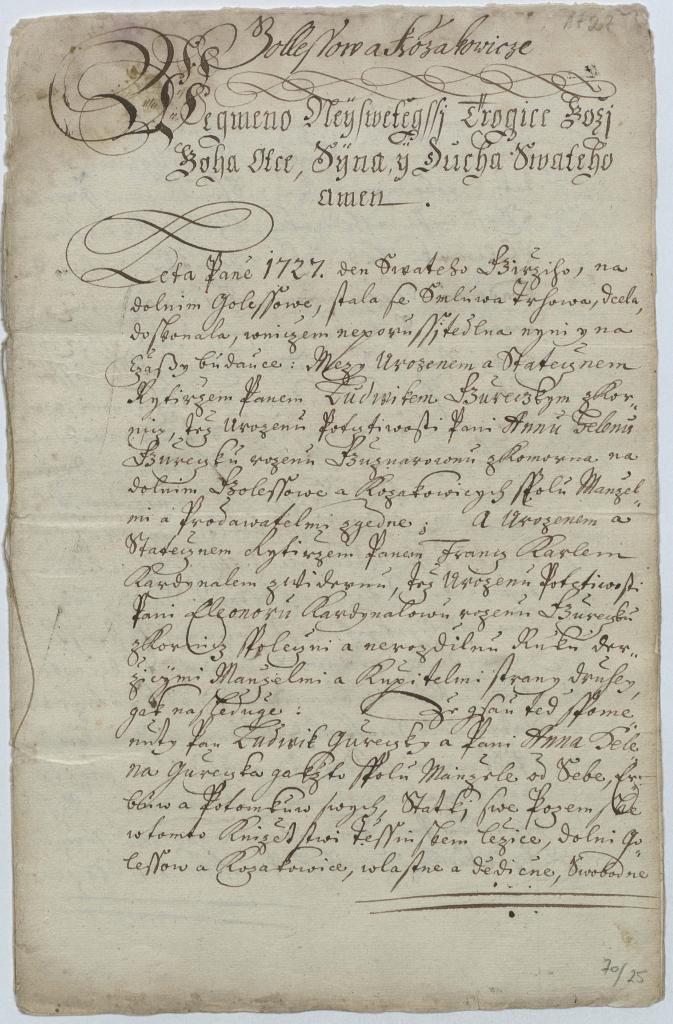 1727
Gollessow a Kozakowicze
We Gegmeno Neyswetegssj Trogice Bozj
Boha Otce, Syna, y Ducha Swateho
amen .
Leta Pane 1727. den Swateho Girziho, na
dolnim Golessowe, stala se Smluwa Trhowa, Cela,
doskonala, wniczem neporussitedlna nyni y na
Czassy budauce: Mezy Urozenem a Statecznem
Rytirzem Panem Ludwikem Gureczkym zkor¬
nicz, tez Urozenu Potcztiwosti Pani Annu Helenu
Gureczku rozenu zkomorna na
dolnim Golessowe a Kozakowicych spolu Manzel¬
mi a Prodawatelmi zgedne; A Urozenem a
Statecznem Rytirzem Panem Francz Karlem
Kardynalem zwidernu, tez Urozenu Potcztiwosti
Pani Eleonoru Kardynalowu rozenu Gureczku
zkornicz spoleczni a nerozdilnu Ruku der¬
zicymi Manzelmi a Kupitelmi strany druhey,
gak nasleduge: Ze gsau ted spome¬
nuty Pan Ludwik Gureczky a Pani Anna Hele
na Gureczka gakzto spolu Manzele od Sebe, Er¬
buw a Potomkuw swych, Statki swe Pozemske
wtomto Knizetstwi Tessinskem lezice, dolni Go¬
lessow a Kozakowice, wlastne a dedicne, Swobodne
70/25